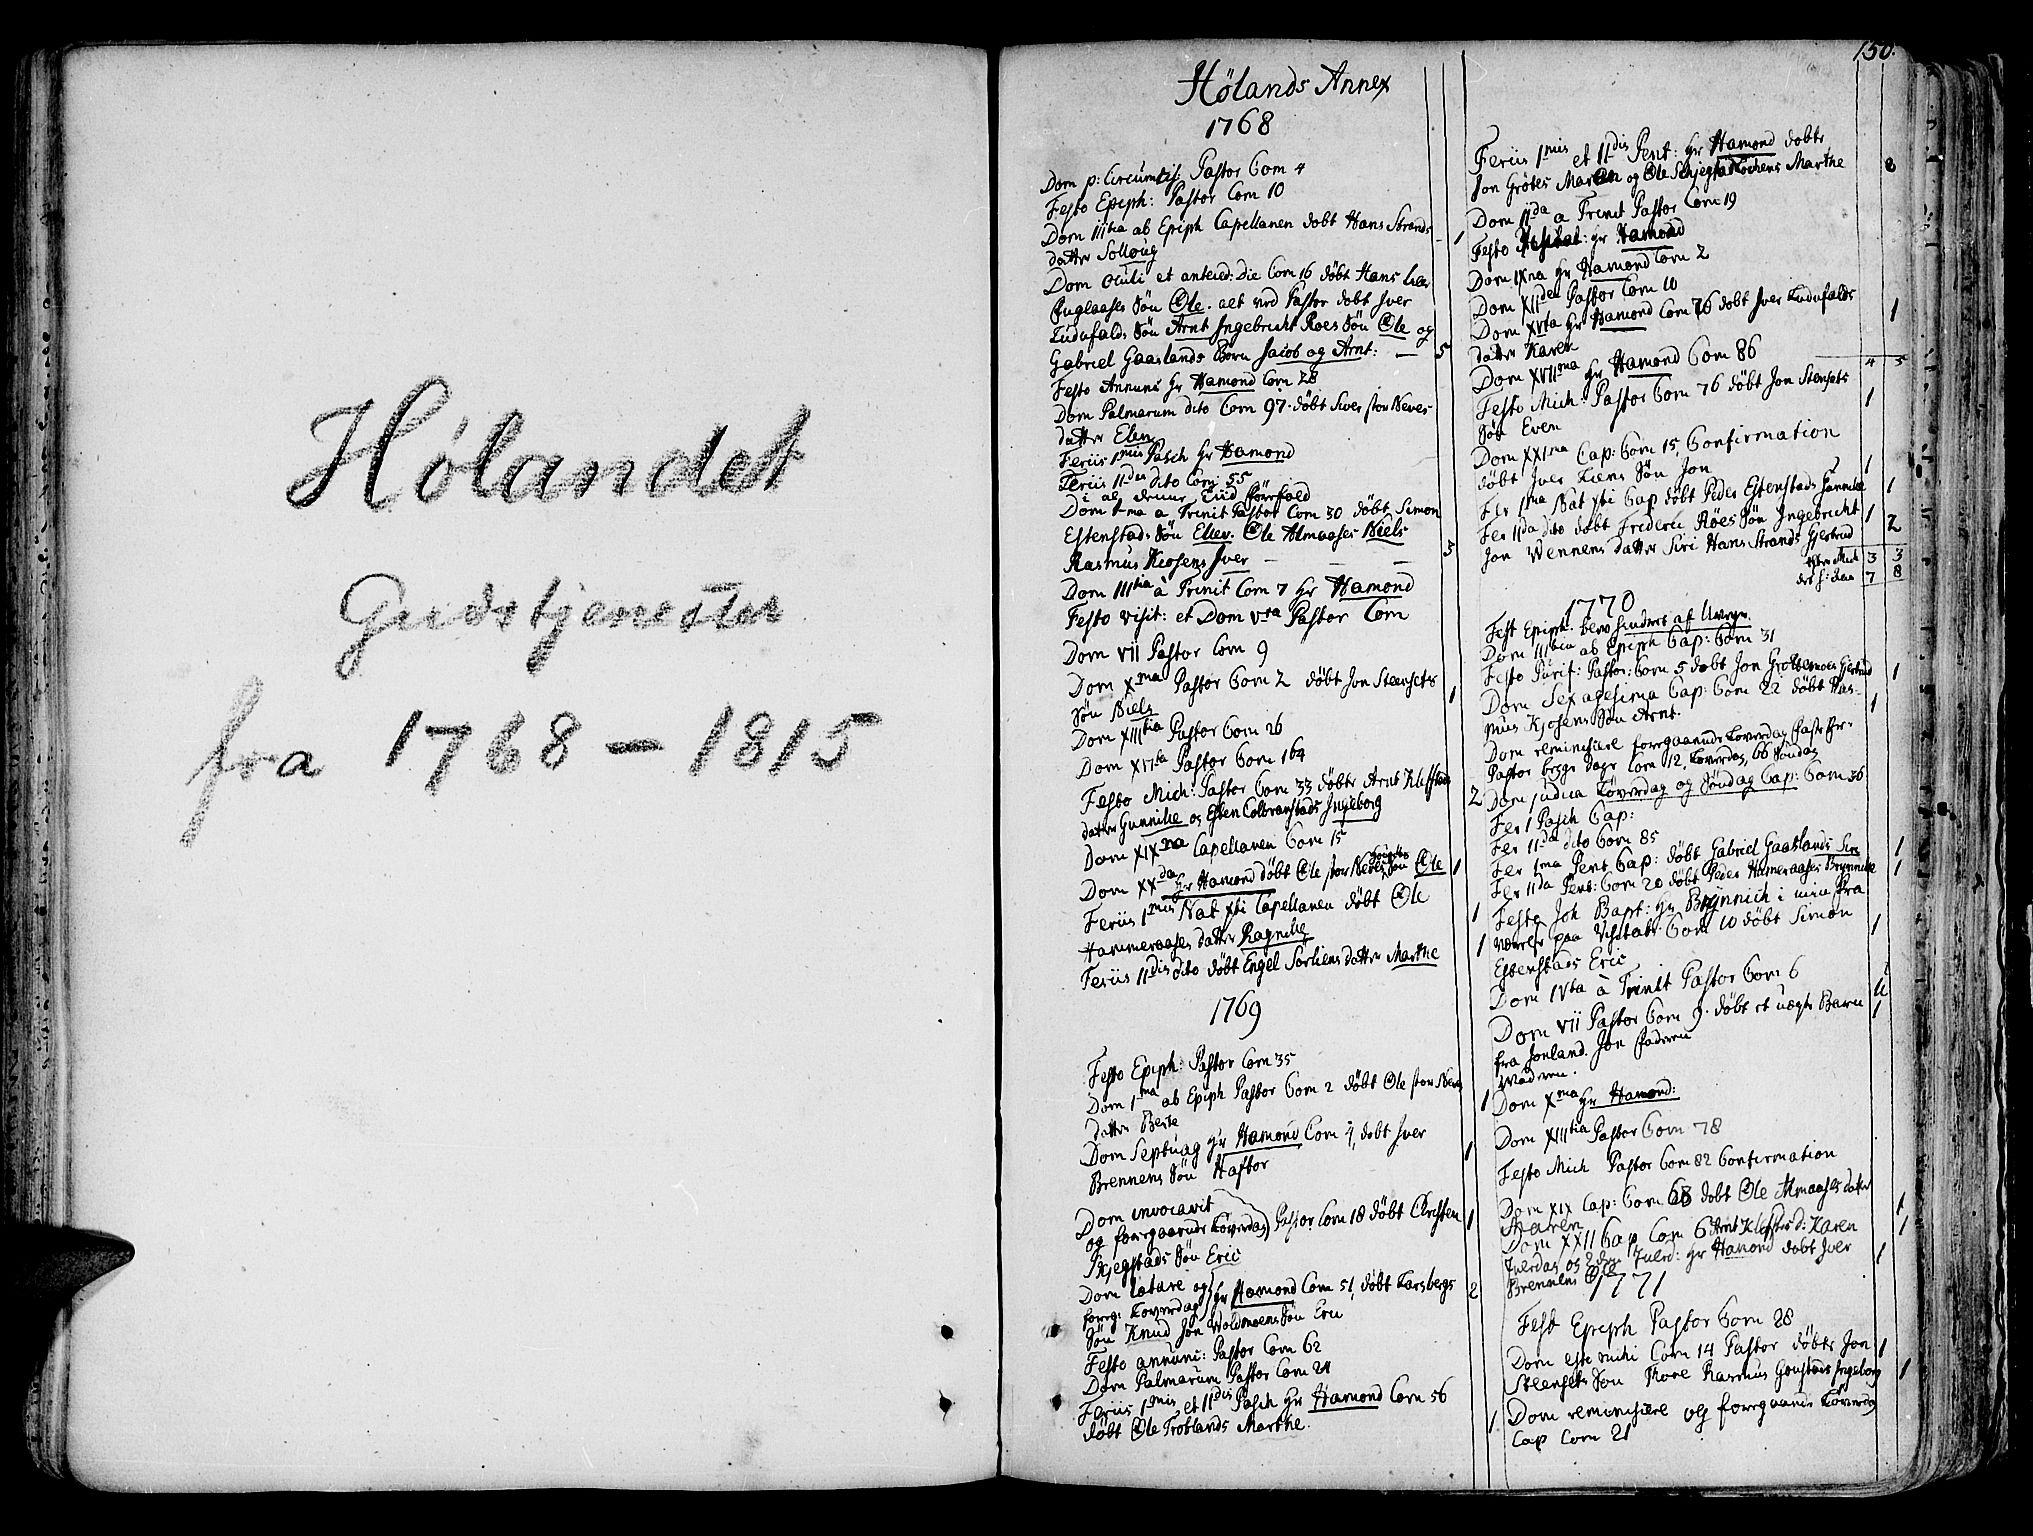 Hølandet
Gudstjenester
fra 1768 - 1815
150.
Hølands Annex
1768
Dom p: Circumcis: Pastor Com 4
Festo Epiph: Pastor Com 10
Dom IIItia ab Epiph Capellanen døbt Hans Strands 1
datter Solloug
Dom Oculi et anteced: Die Com 16 døbt Hans
Søn Ole. alt ved Pastor døbt Iver
Søn Arnt Ingebricht Roes Søn Ole og
Gabriel Gaaslands Børn Jacob og Arnt: — 5
Festo Annunc Hr Hamond Com 28
Dom Palmarum dito Com 97. døbt Siver stor Neves
datter Elen
Feriis 1mis Pasch Hr Hamond
Feriis IIdis dito Com 55
Dom 1ma a Trinit Pastor Com 30 døbt Simon
Estenstads Søn Ellev. Ole Almaases Niels
Rasmus Kiosens Iver — — — 3
Dom IIItia à Trinit Com 7 Hr Hamond
Festo visit: et Dom Vta Pastor Com
Dom VII Pastor Com 9
Dom Xma Pastor Com 2 døbt Jon Steensets 1
Søn Niels
Dom XIIItia Pastor Com 26
Dom XVIta Pastor Com 164
Festo Mich: Pastor Com 33 døbte Arnt Kleffstads 2
datter Gunnild og Esten Colbranstads Ingeborg
Dom XIXna Capellanen Com 15
Dom XXda Hr Hamond døbt Ole stor Neves Søn Ole 1
Feriis 1mis Nat Xti Capellanen døbt Ole 1
Hammeraases datter Ragnild
Feriis IIdis dito døbt Engel Sorliens datter Marthe 1
1769
Festo Epiph: Pastor Com 35
Dom 1ma ab Epiph Pastor Com 2 døbt Ole stor Neves 1
datter Berte
Dom Septuag Hr Hamond Com 4, døbt Iver 1
Brennens Søn Haftor
Dom invocavit
og foregaaende Løverdag Pastor Com 18 døbt Christen 1
Skjegstads Søn Eric
Dom lætare og Hr Hamond Com 51, døbt Karsbergs 2
foreg: Løverdag
Søn Knud Jon Woldmoens Søn Eric
Festo annunc: Pastor Com 62
Dom Palmarum Pastor Com 24
Feriis 1mis et IIdis Pasch Hr Hamond Com 56
døbt Ole Frøblands Marthe. 1
Feriis 1mis et IIdis Pent: Hr Hamond døbte
Jon Grøtes Maren og Ole Skjegstadlochens Marthe 8
Dom IIda a Trinit Pastor Com 19
Festo Visitat: Hr Hamond
Dom IXna Hr Hamond Com 2
Dom XIIda Pastor Com 10
Dom XVta Hr Hamond Com 76 døbt Iver 1
datter Karen
Dom XVIIma Hr Hamond Com 86 4 5
Festo Mich: Pastor Com 76 døbt Jon Stensets 1
Søn Even
Dom XXIma Cap: Com 15, Confirmation
døbt Iver Liens Søn Jon 1
Fer 1ma Nat Xti Cap døbt Peder Estenstads Gunnild 1
Fer IIda dito døbt Frideric Røes Søn Ingebricht 1 2
Jon Wennens datter Siri Hans Strands Gjertrud
3 3
7 8
1770
Fest Epiph: blev hindret af Uveyr.
Dom IIItia ab Epiph Cap: Com 31
Festo Purif: Pastor: Com 5 døbt Jon Grøttemoes Gjertrud 1
Dom Sexagesima Cap: Com 22 døbt Ras- 1
mus Kjosens Søn Arnt.
Dom reminiscere foregaaende Løverdag
Pastor begge Dage Com 12, Løverdag, 66 Søndag
Dom judica Løverdag og Søndag Cap: Com 36
Fer 1 Pasch Cap:
Fer IIda dito Com 85
Fer 1ma Pent Cap: døbt Gabriel Gaaslands Siri 1
Fer IIda Pent: Com 20 døbt Peder Hameraases Brynnild 1
Festo Joh Bapt: Hr Brynnich i min fra
værelse paa Visitatz: Com 10 døbt Simon 1
Estenstads Eric
Dom IVta à Trinit Pastor Com 6
Dom VII Pastor Com 9. døbt et uægte Barn 1
fra Jonland. Jon Faderen
Moderen.
Dom Xma Hr Hamond:
Dom XIIItia Pastor Com 78
Festo Mich Pastor Com 82 Confirmation
Dom XIX Cap: Com 68 døbt Ole Almaases datter 1
Maren
Dom XXII Cap Com 6 Arnt Klefstes D: Karen 1
Juledag og 2den Juled: Hr Hamond døbt Iver 1
Brennens Ole
1771
Fest Epiph Pastor Com 28
Dom este mihi Com 14 Pastor døbte Jon 1
Steensets Søn Thore Rasmus Gaustads Ingeborg 1
Dom reminiscere og foregaaende Løverdag
Cap Com 21